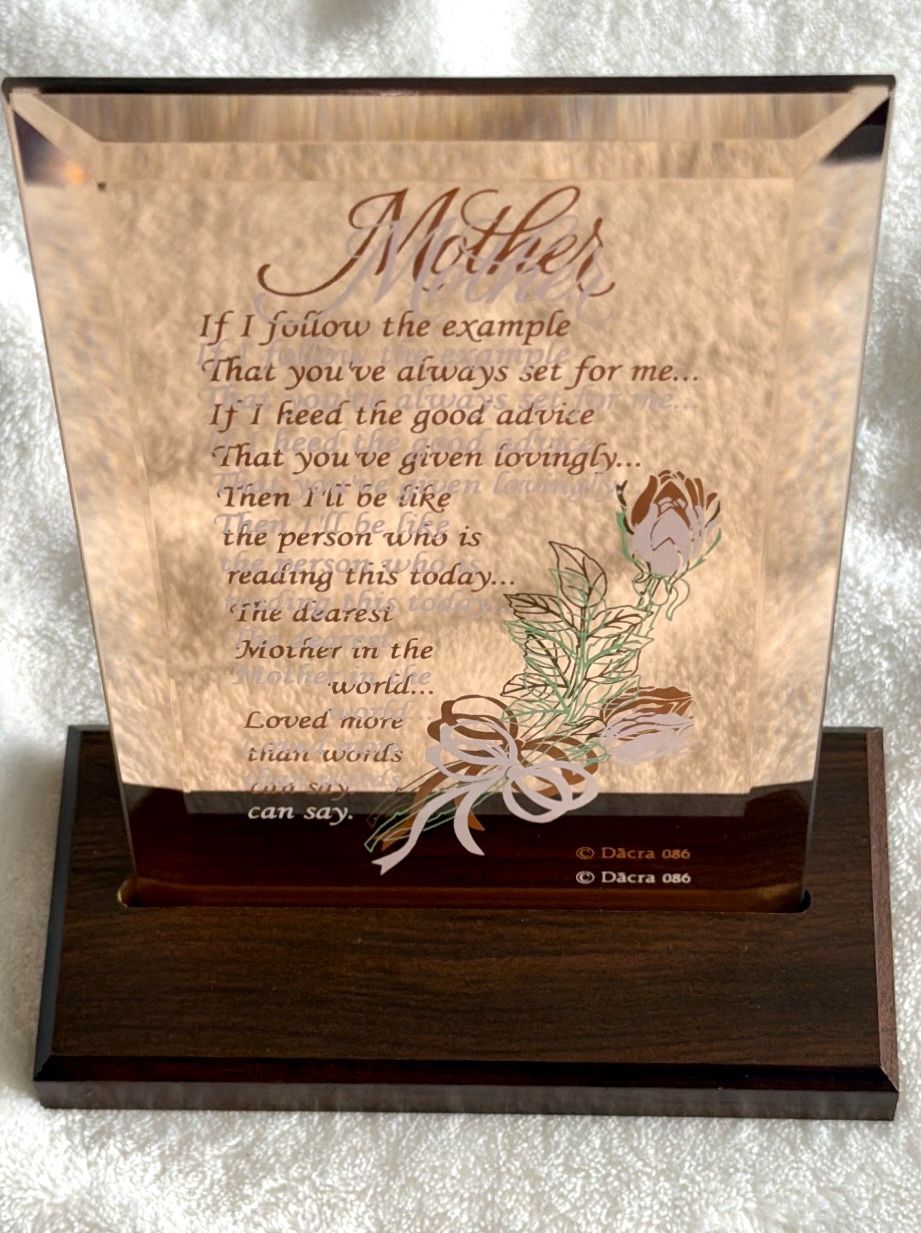 Mother
If I follow the example
That you've always set for me...
If I heed the good advice
That you've given lovingly...
Then I'll be like
the person who is
reading this today...
The dearest
Mother in the
world...
Loved more
than words
can say.
© Dācra 086